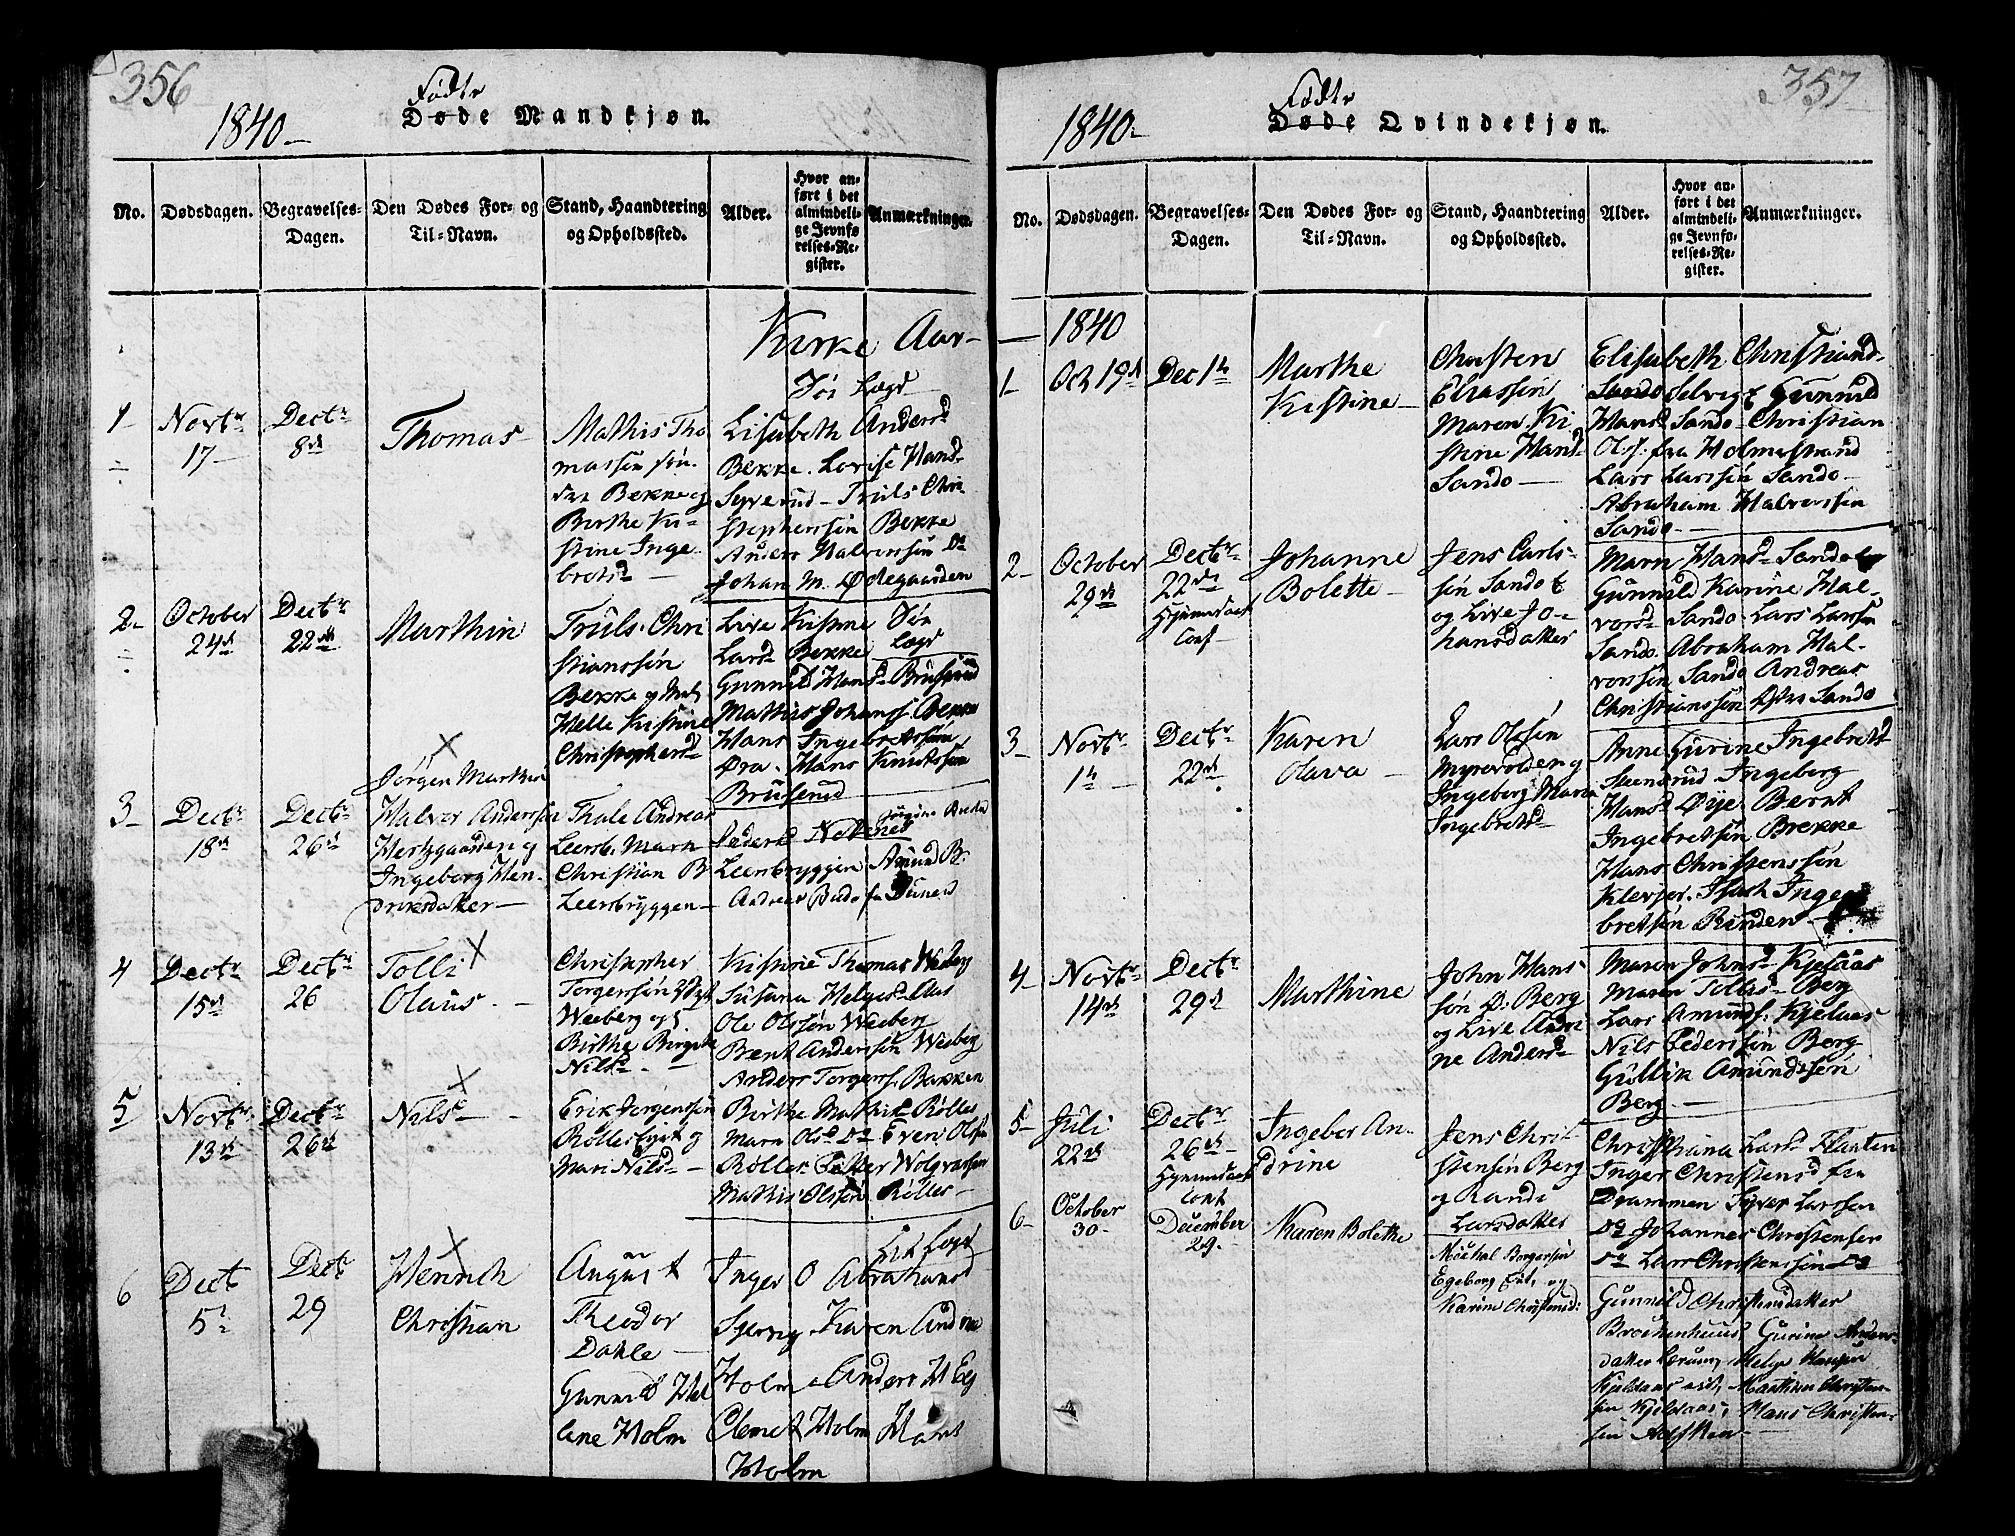 356
1840
Fødte
Døde Mandkjøn.
No.
Dødsdagen.
Begravelses-
Dagen.
Den Dødes For- og
Til-Navn.
Stand, Haandtering
og Opholdssted.
Alder.
Hvor an-
ført i det
almindeli-
ge Jevnfø
relses-Re-
gister.
Anmærkninger.
Kirke Aar-
1
Novbr
17
Decbr
8de
Thomas
Mathis Tho
massen
Bekke og
Birthe Ki-
stine Inge-
bretsd
Lisabeth Andersd
Bekke. Lovise Hansd
Syverud - Truls Chri
stophersen Bekke
Anders Halvorssen Do
Johan M. Ødegaarden
2
October
24d
Decbr
22de
Marthin
Truls Chri
stianssøn
Bekke og
Helle Kistine
Christophersd
Live Kistine
Larsd Bekke
Gunnild Hansd Bruserud
Mathis Johanss. Bekke
Hans Ingebretssøn
Øra. Hans Knutssøn
Bruserud
3
Decbr
18de
Decbr
26d
Jørgen Marthin
Halvor Anderssen
Hertzgaarden og
Ingeborg Hen-
driksdatter
Thale Andrea
Leersb. Maren
Christian B
Leersbryggen
Pedersd Nebnes
Leersbryggen Amund B.
4
Decbr
15de
Decbr
26
Tolli
Olaus
Christopher
Torgerssøn
Weeberg og
Birthe Birgitte
Nilsd
Kistine Thomasd Weeberg
Susana Helgesd Aas
Ole Olssøn Weeberg
Bernt Anderssøn Weeberg
Anders Torgerss. Bakken
5
Novbr
13de
Decbr
26de
Nils
Erik Jørgenssen
Røllereyet og
Mari Nilsd
Birthe Mathisd Rølles
Maren Olsd Do Even Olssen
Røller
Mathis Olssøn Røller
6
Decbr
5
Decbr
29
Henrich
Christian
August
Theodor
Dahle
Gunnild Hel
lene Holm
Inger O Abrahamsd
Karen Andrea
Holm - Anders H Eeg
Clemet Holm
Holm
357
1840
Fødte
Døde Qvindekjøn.
No.
Dødsdagen.
Begravelses-
Dagen.
Den Dødes For- og
Til-Navn.
Stand, Haandtering
og Opholdssted.
Alder.
Hvor an-
ført i det
almindeli-
ge Jevnfø-
relses-Re-
gister.
Anmærkninger.
1840
1
Oct 19d
Dec 1ste
Marthe
Kistine
Chasten
Eliassen
Maren Ki
stine Hansd
Sando
Elisabeth Christiansd
Sando Selvigt Gunnild
Hansd Sando Christian
Ols. fra Holmestrand
Lars Larssen Sando
Abraham Halvorssen
Sando
2
October
29de
Decbr
22de
Hjemmedøbt
Conf
Johanne
Bolette
Jens Carls-
søn Sando E
og Live Jo-
hansdatter
Maren Hansd Sando
Gunnild Karine Hal-
vorsd Sando. Lars Larssen
Sando. Abraham Hal-
vorssen Sando Andreas
Christianssøn Østre Sando
3
Novbr
1te
Decbr
22de
Karen
Olava
Lars Olssen
Myrevolden og
Ingeborg Maria
Ingebretsd
Anne Gurine Ingebretsd
Steensrud Ingeborg
Hansd Øye Bernt
Ingebretsøn Brekke
Hans Christenssøn
Klevjer. Isach Inge
bretsøn Rinden
4
Novbr
14de
Decbr
29d
Marthine
John Hans
søn Ø: Berg
og Live Andri
ne Andersd
Maren Johnsd Kjelaas
Maren Tollefsd Berg
Lars Amunds. Kjelaas
Nils Pederssøn Berg
Gullik Amundssøn
Berg
5
Juli
22de
Decbr
26de
Hjemmedøbt
Conf
Ingeber An-
drine
Jens Chri
stensen Berg
og Randi
Larsdatter
Christhiana Larsd Flaaten
Inger Christensd fra
Drammen Syver Larssen
Do Johannes Christensen
Do Lars Christenssøn Do
6
October
30
December
29.
Karen Bolette
Michal Borgersen
Egeborg Eid, og
Karine Christensd:
Gunnild Christensdatter
Brochenhuus, Gurine Anders-
datter Lerum, Helge Hansen
Kjeldaas eid, Mathias Christen-
sen Kjeldaas, Hans Christen-
sen